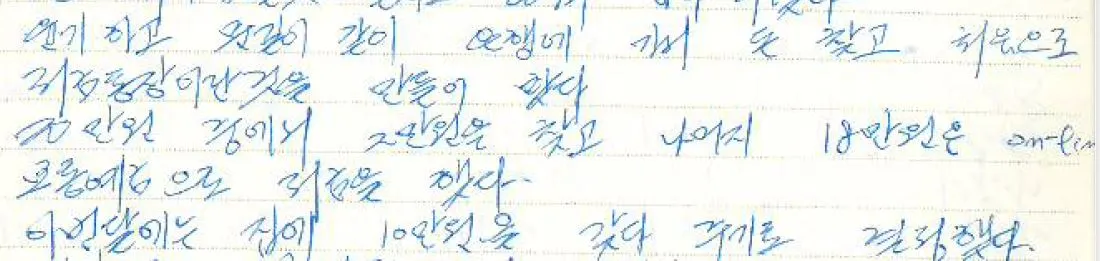 연기 하고 원길이 같이 은행에 가서 돈 찾고 처음으로
저금통장이란것을 만들어 왔다
20만원 중에서 2만원을 찾고 나머지 18만원은 on-lin
보통예금으로 저금을 했다.
이번달에는 집에 10만원을 갖다 주기로 결정했다.